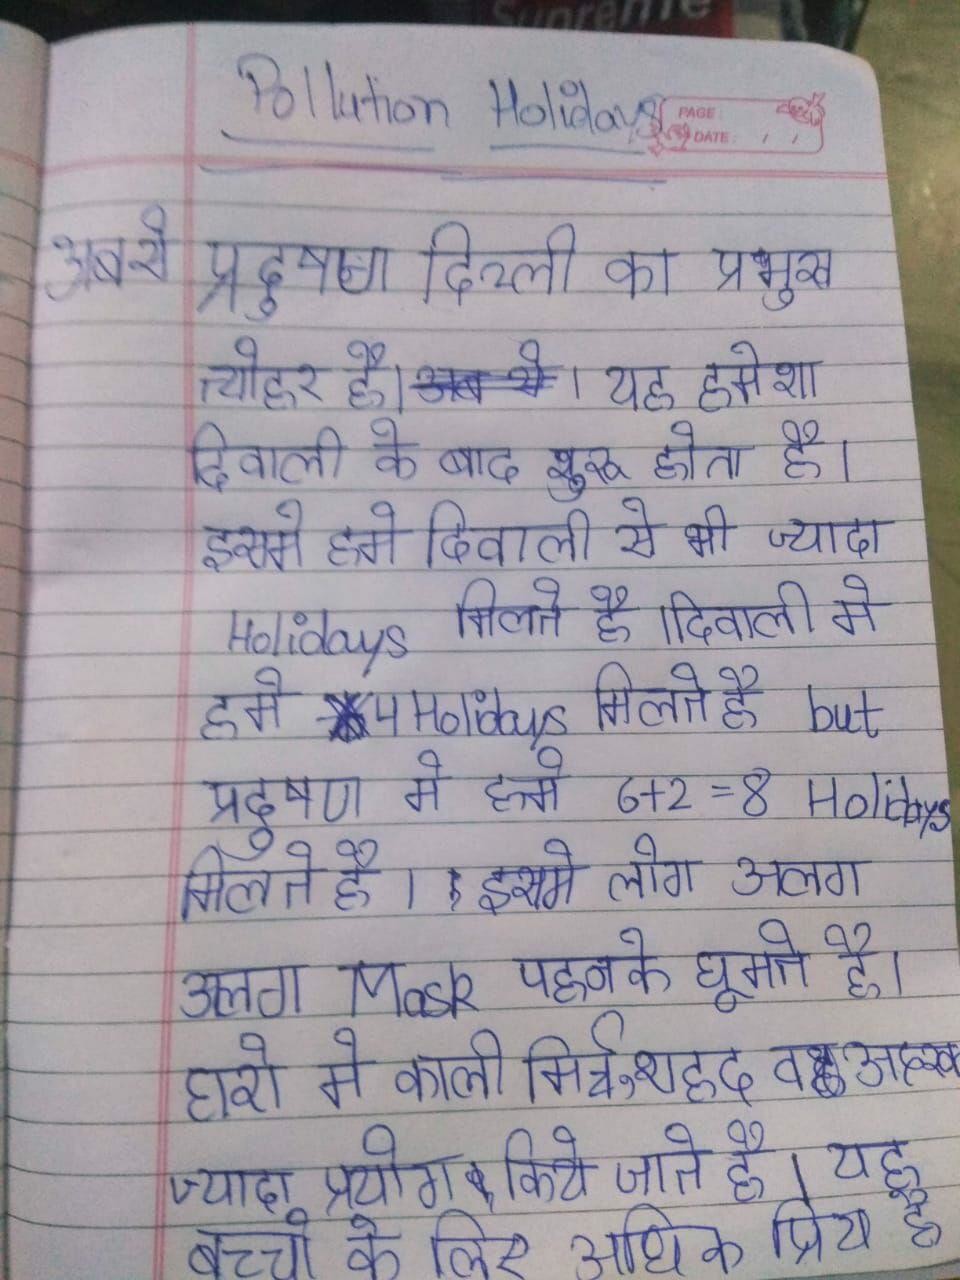 Supreme
Pollution Holidays
PAGE :
DATE : / /
अबसे प्रदुषण दिल्ली का प्रमुख
त्योहर है। अब से । यह हमेशा
दिवाली के बाद शुरू होता है।
इसमे हमे दिवाली से भी ज्यादा
Holidays मिलते है । दिवाली मे
हमे 4 Holidays मिलते है but
प्रदुषण मे हमे 6+2=8 Holidays
मिलते है । इसमे लोग अलग
अलग Mask पहनके घूमते है।
घरो मे काली मिर्च, शहद व
ज्यादा प्रयोग किये जाते है । यह
बच्चो के लिए अधिक प्रिय है